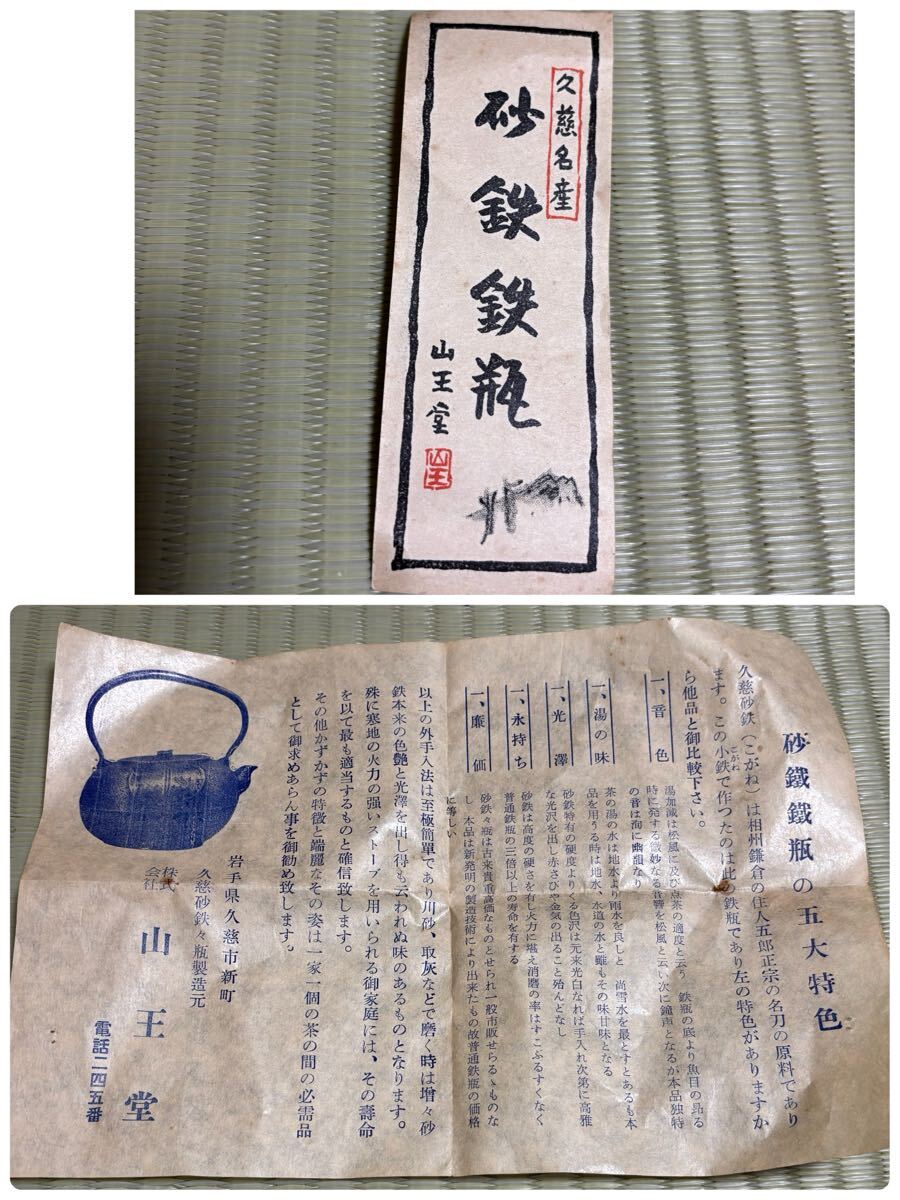 久慈名産
砂鉄鉄瓶
山王堂
山王
砂鐵鐵瓶の五大特色
久慈砂鉄(こがね)は相州鎌倉の住人五郎正宗の名刀の原料であり
ます。この小鉄で作つたのは此の鉄瓶であり左の特色がありますか
こがね
ら他品と御比較下さい。
一、音色
湯加減は松風に及び点茶の適度と云う 鉄瓶の底より魚目の昻る
時に発する微妙なる音響を松風と云い次に鐘声となるが本品独特
の音は洵に幽韻なり
一、湯の味
茶の湯の水は地水より雨水を良しと 尚雪水を最とすとあるも本
品を用う時は地水、水道の水と雖もその味甘味となる
一、光澤
砂鉄特有の硬度よりくる色沢は元来光白なれば手入れ次第に高雅
な光沢を出し赤さびや金気の出ること殆んどなし
一、永持ち
砂鉄は高度の硬さを有し火力に堪え消磨の率はすこぶるすくなく
普通鉄瓶の三倍以上の寿命を有する
一、廉価
砂鉄々瓶は古来貴重高価なものとせられ一般市販せらるゝものな
し 本品は新発明の製造技術により出来たもの故普通鉄瓶の価格
に等しい
以上の外手入法は至極簡單であり川砂、取灰などで磨く時は増々砂
鉄本来の色艶と光澤を出し得も云われぬ味のあるものとなります。
殊に寒地の火力の强いストーブを用いられる御家庭には、その壽命
を以て最も適当するものと確信致します。
その他かずかずの特徴と端麗なその姿は一家一個の茶の間の必需品
として御求めあらん事を御勧め致します。
岩手県久慈市新町
久慈砂鉄々瓶製造元
株式会社 山王堂
電話二四五番